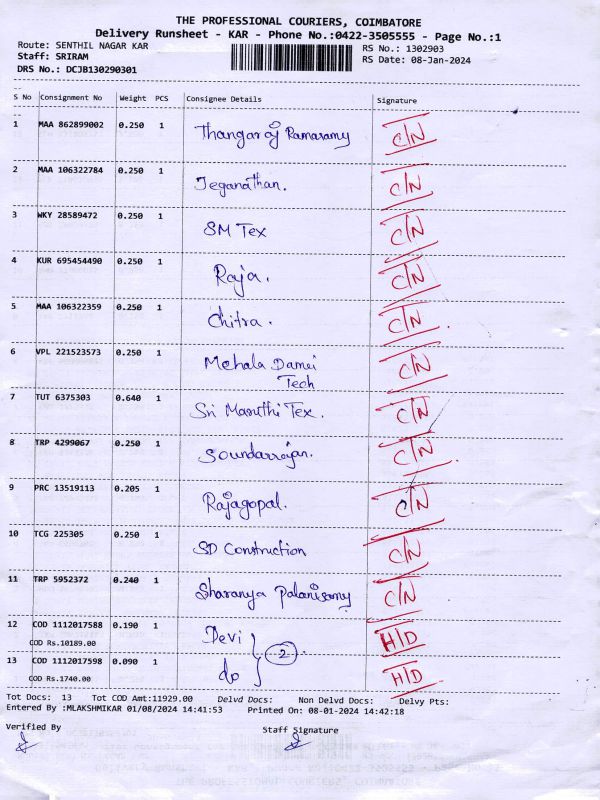 THE PROFESSIONAL COURIERS, COIMBATORE
Delivery Runsheet - KAR - Phone No.:0422-3505555 - Page No.:1
Route: SENTHIL NAGAR KAR RS No.: 1302903
Staff: SRIRAM RS Date: 08-Jan-2024
DRS No.: DCJB130290301
S No Consignment No Weight PCS Consignee Details Signature
1 MAA 862899002 0.250 1 Thangaraj Ramasamy C/N
2 MAA 106322784 0.250 1 Jeganathan. C/N
3 WKY 28589472 0.250 1 SM Tex C/N
4 KUR 695454490 0.250 1 Raja. C/N
5 MAA 106322359 0.250 1 Chitra. C/N
6 VPL 221523573 0.250 1 Mehala Damei C/N
Tech
7 TUT 6375303 0.640 1 Sri Maruthi Tex. C/N
8 TRP 4299067 0.250 1 Soundarrajan. C/N
9 PRC 13519113 0.205 1 Rajagopal. C/N
10 TCG 225305 0.250 1 SD Construction C/N
11 TRP 5952372 0.240 1 Sharanya Palanisamy C/N
12 COD 1112017588 0.190 1 Devi H/D
COD Rs.10189.00 2
13 COD 1112017598 0.090 1 do H/D
COD Rs.1740.00
Tot Docs: 13 Tot COD Amt:11929.00 Delvd Docs: Non Delvd Docs: Delvy Pts:
Entered By :MLAKSHMIKAR 01/08/2024 14:41:53 Printed On: 08-01-2024 14:42:18
Verified By Staff Signature